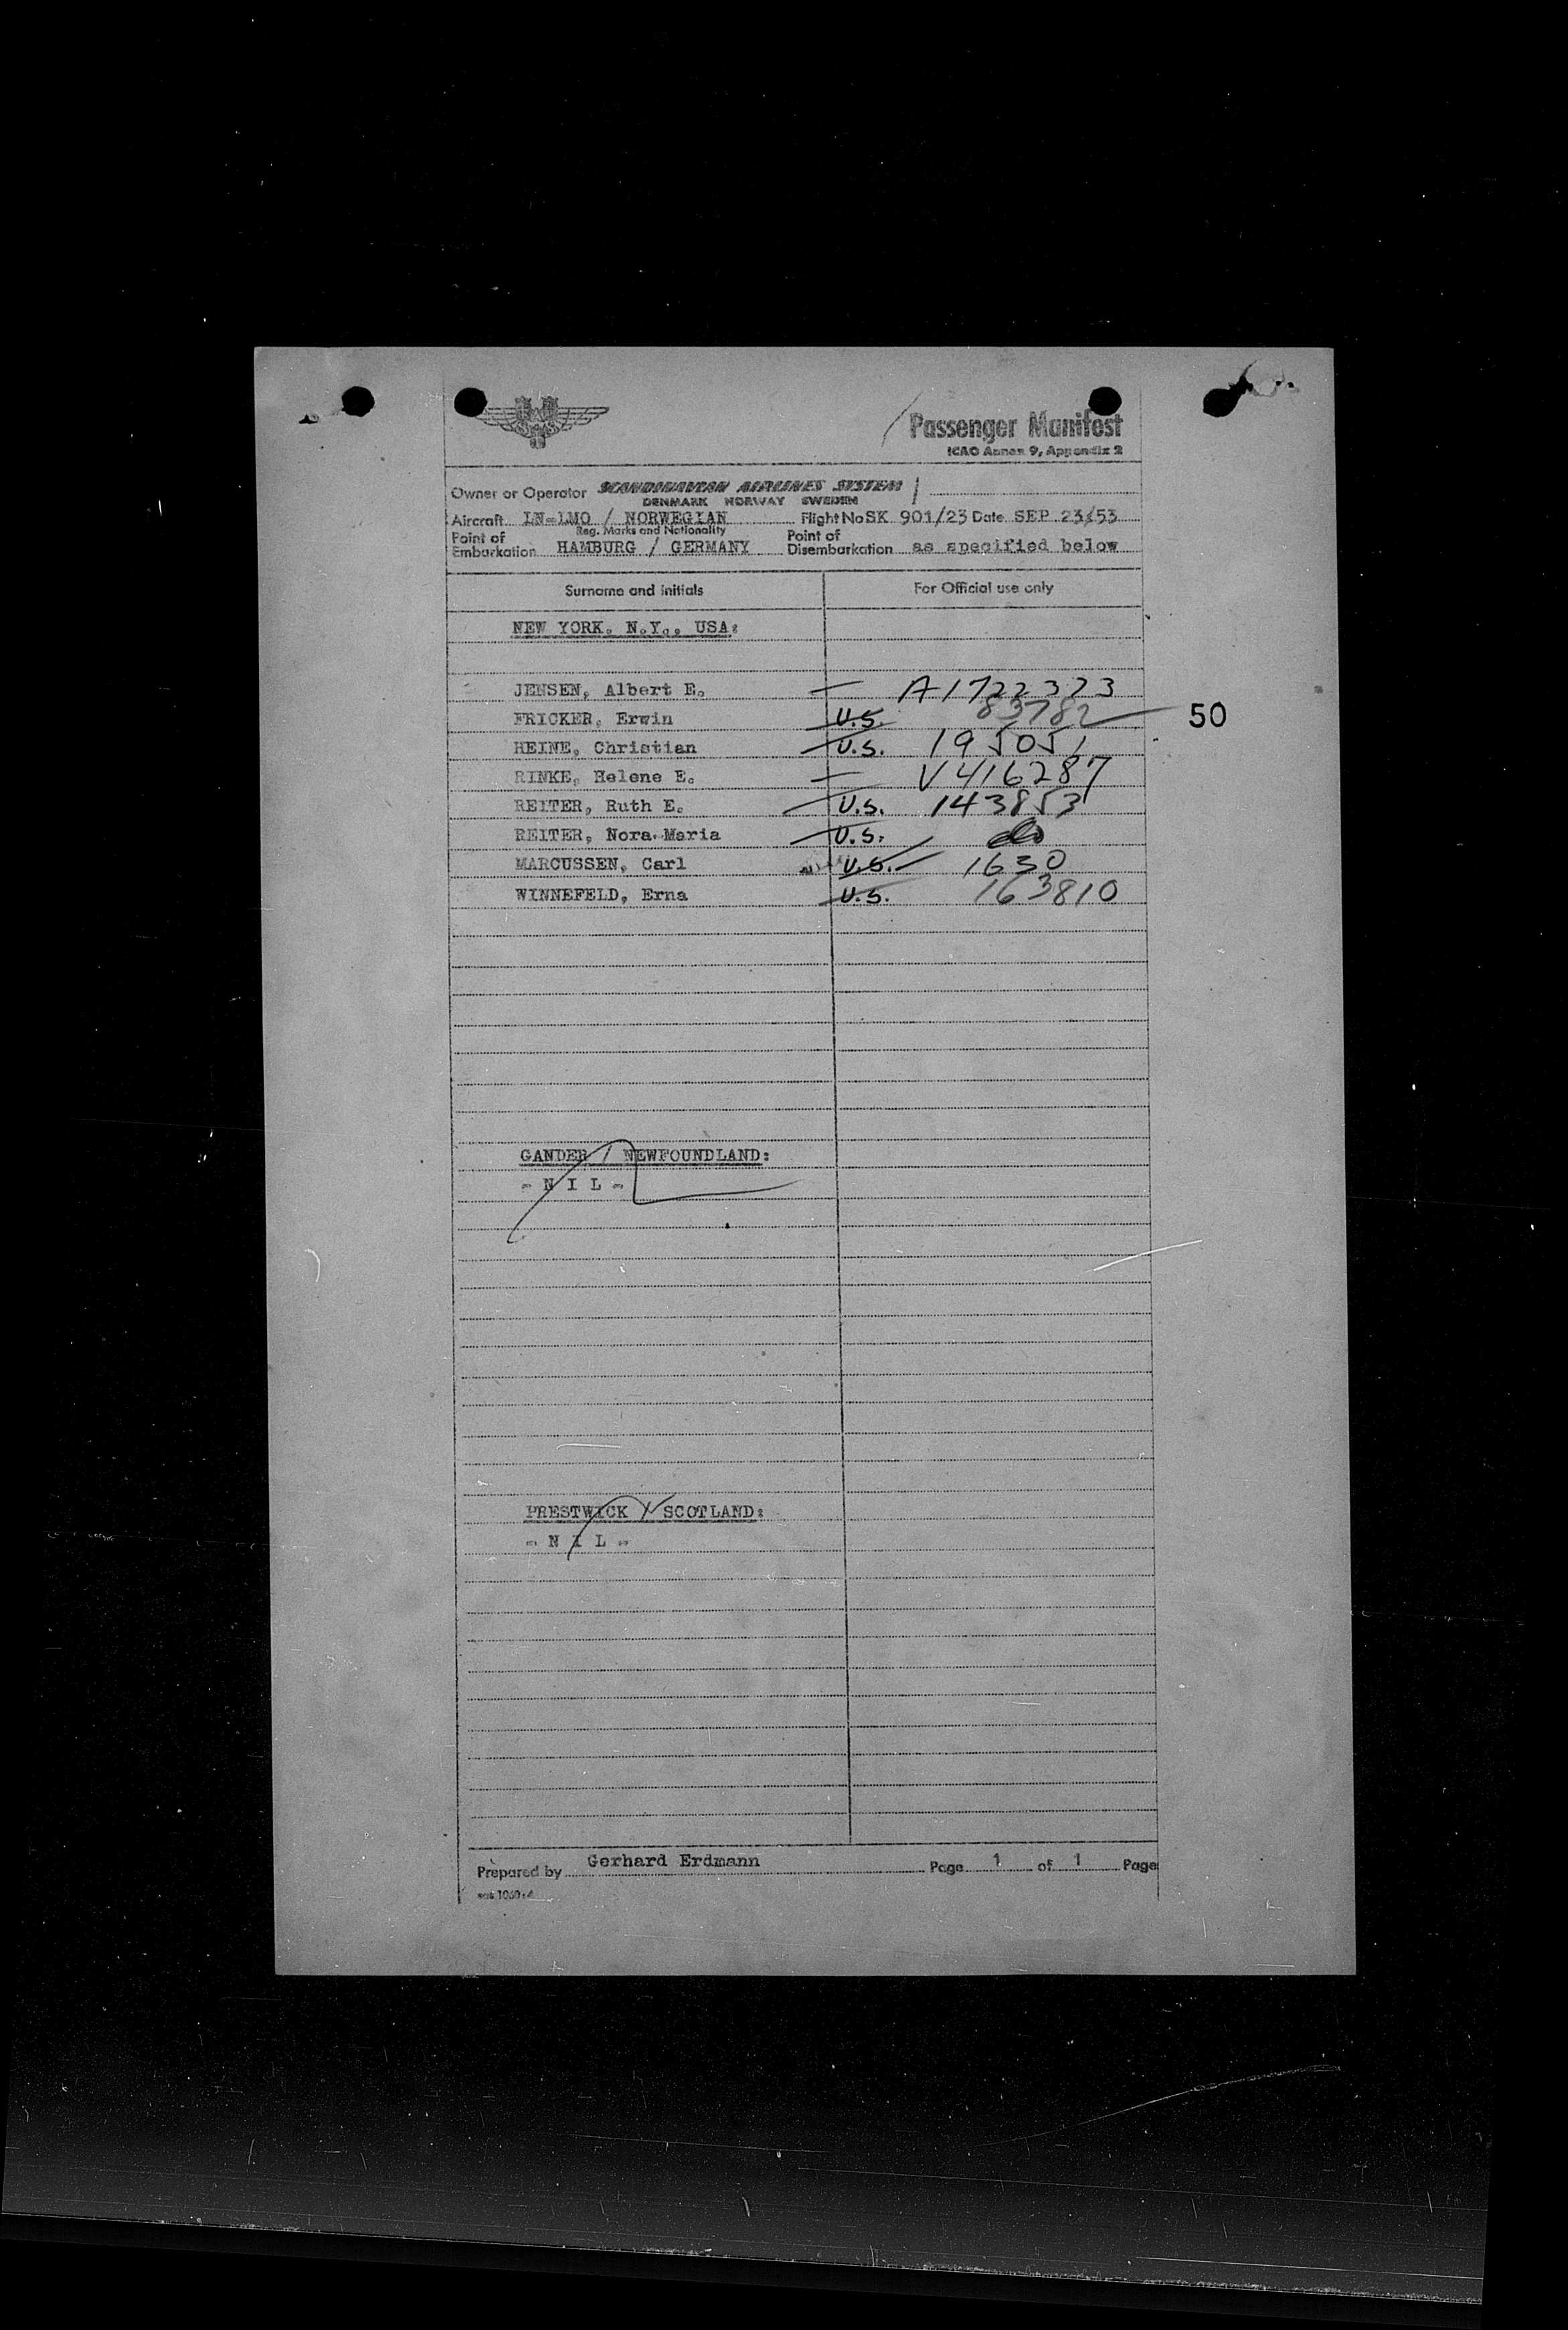 Passenger Manifest
ICAO Annex 9, Appendix 2
Owner or Operator SCANDINAVIAN AIRLINES SYSTEM
DENMARK NORWAY SWEDEN
Aircraft LN-LMO / NORWEGIAN Flight No SK 901/23 Date SEP 23/53
Reg. Marks and Nationality
Point of Embarkation HAMBURG / GERMANY Point of Disembarkation as specified below
Surname and initials For Official use only
NEW YORK, N.Y., USA:
JENSEN, Albert E. — A1722323
FRICKER, Erwin U.S. 83782 50
HEINE, Christian U.S. 195051
RINKE, Helene E. — V416287
REITER, Ruth E. U.S. 143853
REITER, Nora Maria U.S.
MARCUSSEN, Carl U.S. 1630
WINNEFELD, Erna U.S. 163810
GANDER / NEWFOUNDLAND:
- N I L -
PRESTWICK / SCOTLAND:
- N I L -
Prepared by Gerhard Erdmann Page 1 of 1 Page